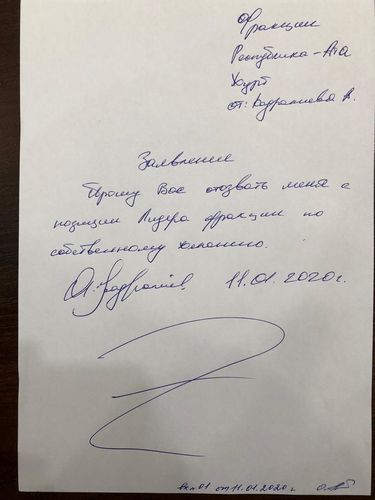 Фракции
Республика-Ата
Журт
от: Кадралиева А.
Заявление
Прошу Вас отозвать меня с
позиции Лидера фракции по
собственному желанию.
11.01.2020г.
вх. 01 от 11.01.2020г.